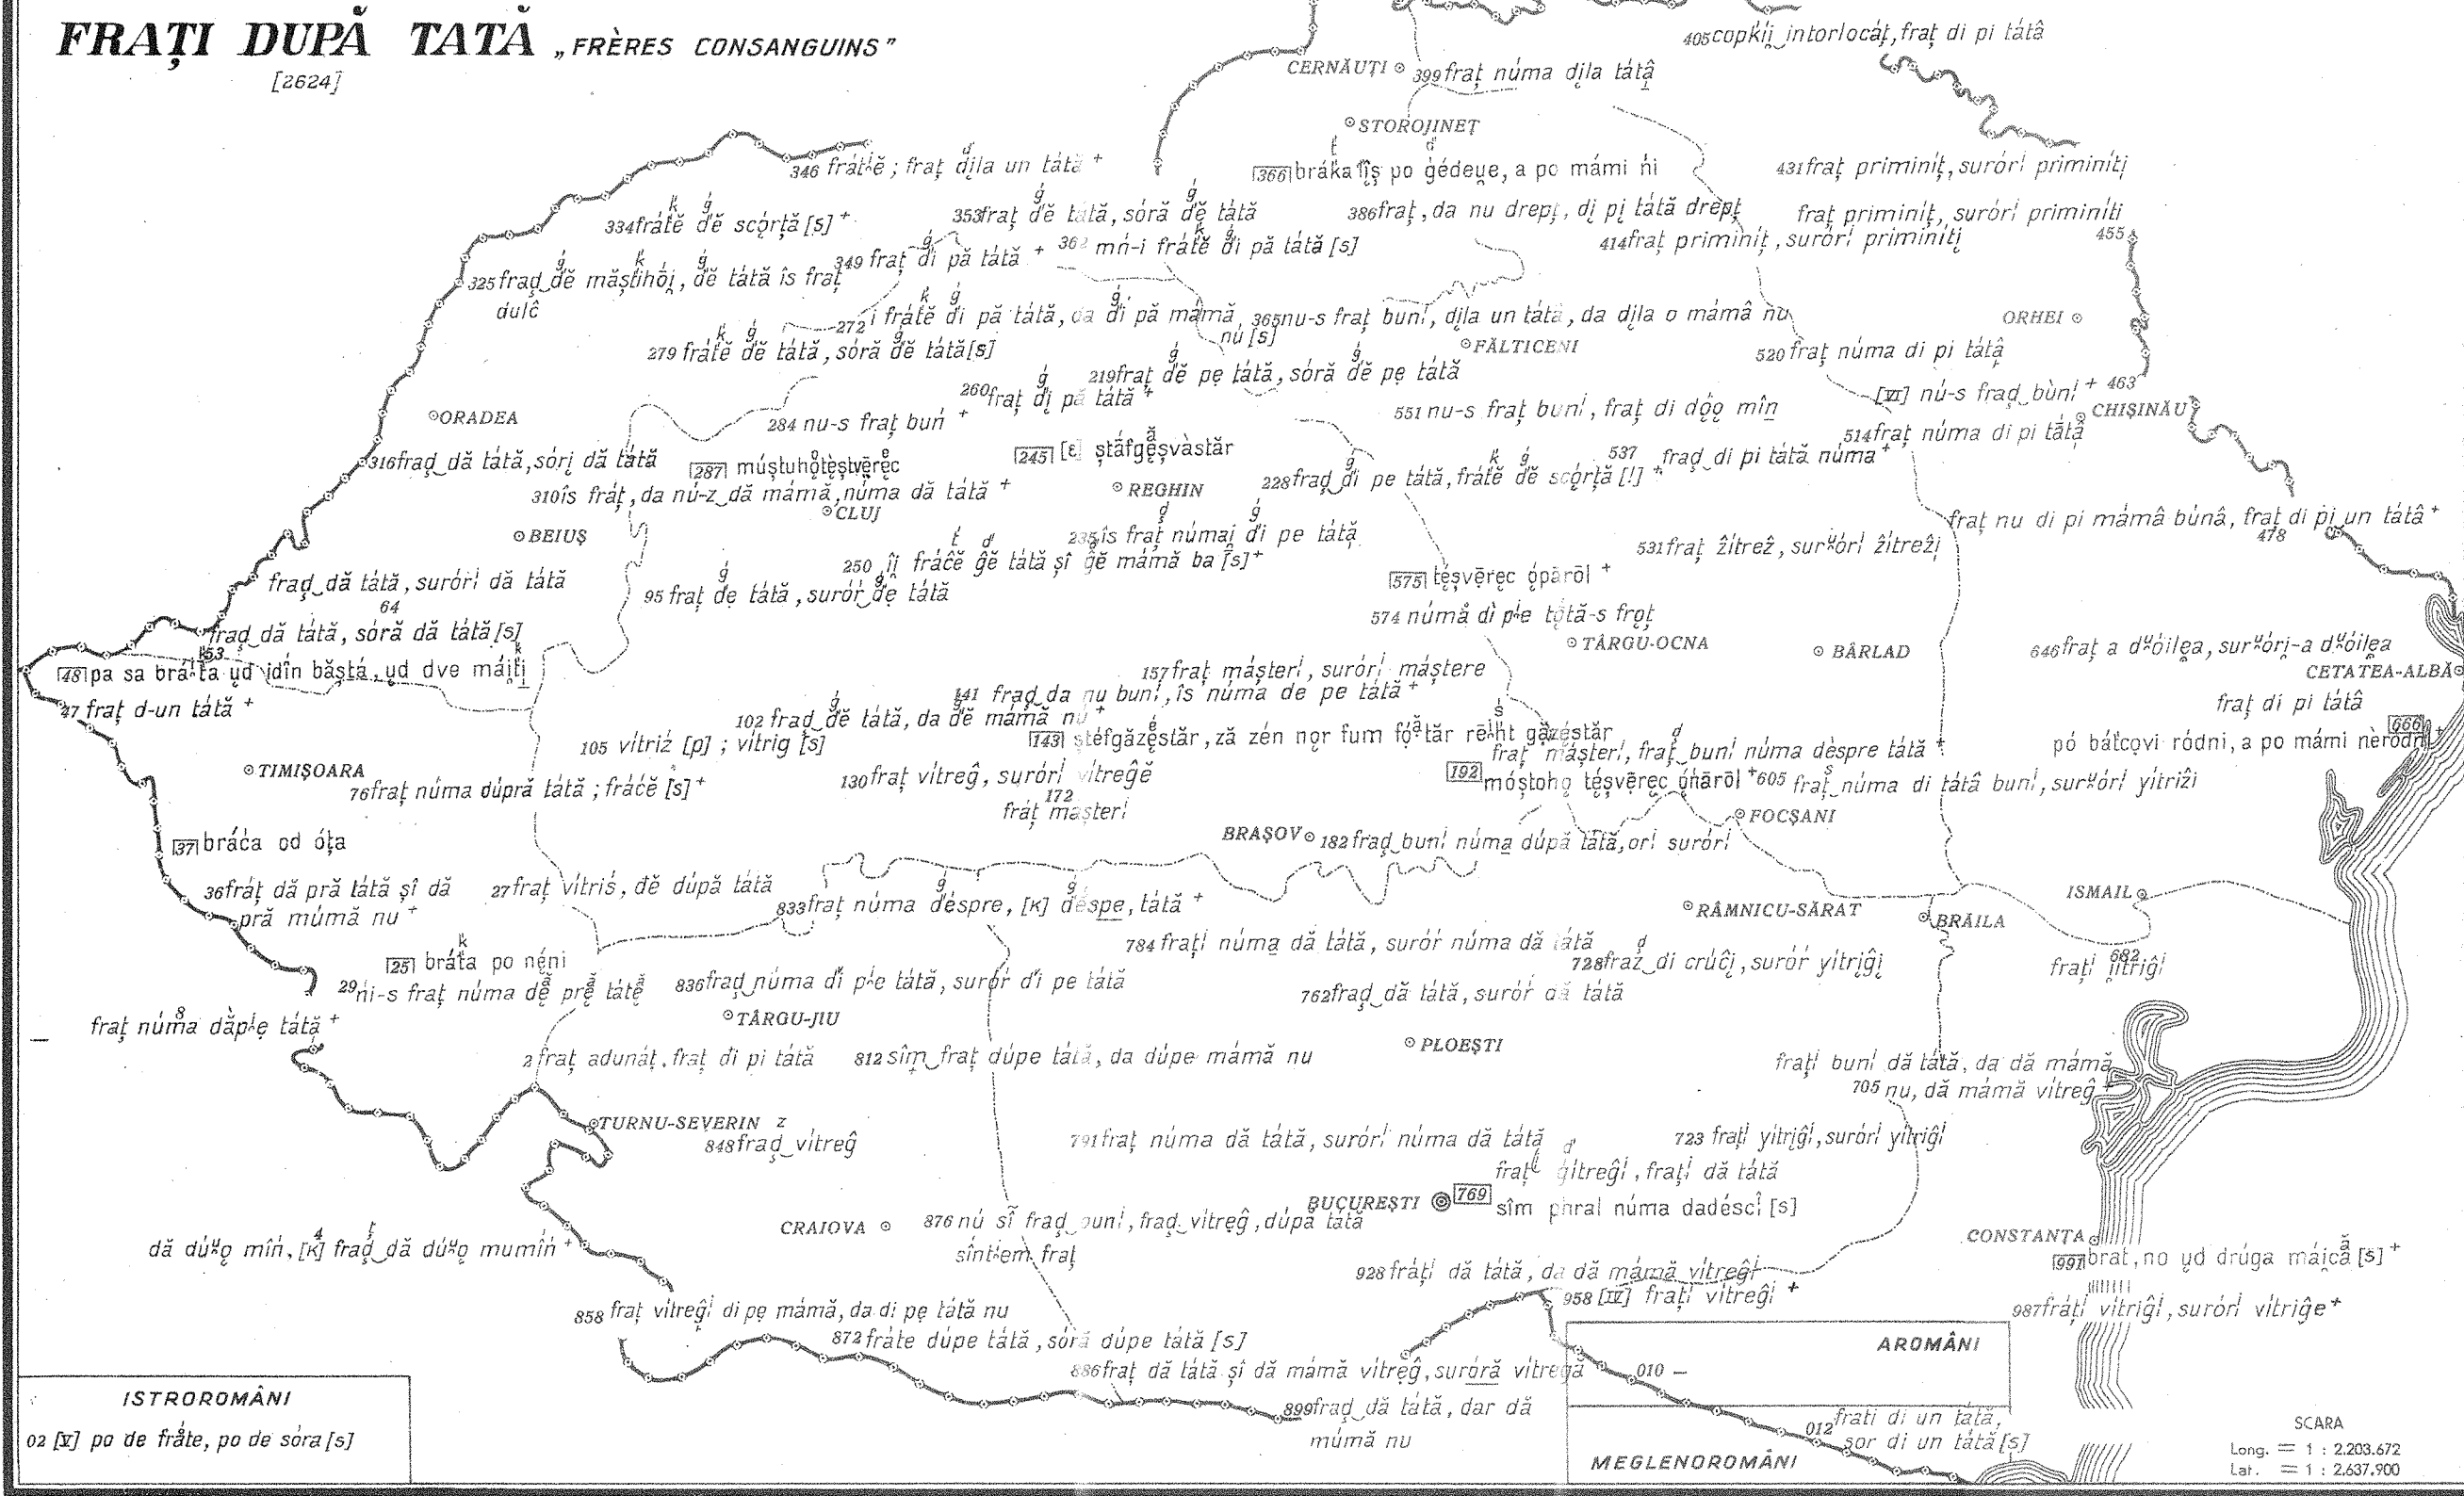 FRAȚI DUPĂ TATĂ „FRÈRES CONSANGUINS”
[2624]
405 copkíi̯ intorlocáț, fraț di pi tátâ
CERNĂUȚI
399 fraț núma dila tátâ
STOROJINEȚ
346 ; fraț dila un tátă +
366 po mámi ńi
431 fraț priminíț, suróri priminíti
334 frátĕ dĕ scórță [s] +
353 fraț dĕ tátă, sóră dĕ tátă
386 fraț, da nu drepț, di pi tátă drepț
fraț priminíț, suróri priminíti
455
414 fraț priminíț, suróri priminíti
349 fraț di pă tátă +
362 mń-i frátĕ di pă tátă [s]
325 frad dĕ măștihói, dĕ tátă îs fraț
dulĉ
272 i frátĕ di pă tátă, da di pă mámă
nú [s]
365 nu-s fraț buni, dila un tátă, da dila o mámâ nu
ORHEI
279 frátĕ dĕ tátă, sóră dĕ tátă [s]
FĂLTICENI
520 fraț núma di pi tátâ
219 fraț dĕ pe tátă, sóră dĕ pe tátă
260 fraț di pă tátă +
[VI] nú-s frad bùni + 463
ORADEA
284 nu-s fraț buń +
551 nu-s fraț buni, fraț di dóo mîn
CHIȘINĂU
514 fraț núma di pi tátâ
316 frad dă tátă, sóri dă tátă
287 múștuhotèștvěrec
245 [ε] ștáfgęșvàstăr
537 frad di pi tátă núma +
310 îs fráț, da nú-z dă mámă, núma dă tátă +
REGHIN
228 frad di pe tátă, frátĕ dĕ scórță [!] +
CLUJ
BEIUȘ
235 îs fraț númai di pe tátă
fraț nu di pi mámâ búnâ, fraț di pi un tátâ +
478
531 fraț žítrež, surᵘóri žítreži
250 îi fráĉĕ ĝĕ tátă șî ĝĕ mámă ba [s] +
575 téșvērec ópārōl +
frad dă tátă, suróri dă tátă
64
95 fraț de tátă, surór de tátă
574 númå dì pⁱe tótă-s froț
frad dă tátă, sóră dă tátă [s]
53
TÂRGU-OCNA
BÂRLAD
646 fraț a dᵘóilea, surᵘóri-a dᵘóilea
48 pa sa bráⁱta ud idín băștá, ud dve máiti
157 fraț máșteri, suróri máștere
CETATEA-ALBĂ
47 fraț d-un tátă +
141 frad da nu buni, îs núma de pe tátă +
fraț di pi tátâ
102 frad dĕ tátă, da dĕ mámă nú +
666
105 vítriź [p] ; vítrig [s]
143 ștéfgăzęstăr, ză zén nor fum fótăr gázéstăr
fraț máșteri, fraț buni núma dèspre tátă +
pó bátcovi ródni, a po mámi nèródni +
TIMIȘOARA
76 fraț núma dúpră tátă ; fráćĕ [s] +
130 fraț vítreĝ, suróri vítreĝĕ
192 móștoho téșvērec óhārōl +
605 fraț núma di tátâ buni, surᵘóri yítriži
172
fráț máșteri
BRAȘOV
182 frad buni núma dúpă tátă, ori suróri
FOCȘANI
37 bráća od óța
36 fráț dă pră tátă șî dă
pră múmă nu +
27 fraț vítriś, dĕ dúpă tátă
833 fraț núma déspre, [K] déspe, tátă +
RÂMNICU-SĂRAT
ISMAIL
BRĂILA
25 bráta po néni
784 frați núma dă tátă, surór núma dă tátă
728 fraz di crúĉi, surór yítriĝi
682
frați
29 ńi-s fraț núma
836 frad núma di pⁱe tátă, surór di pe tátă
762 frad dă tátă, surór dă tátă
8
fraț núma dăpⁱę tátă +
TÂRGU-JIU
PLOEȘTI
2 fraț adunáț, fraț di pi tátă
812 sîm fraț dúpe tátă, da dúpe mámă nu
frați buni dă tátă, da dă mámă
705 nu, dă mámă vítreĝ +
TURNU-SEVERIN
848 frad vítreĝ
791 fraț núma dă tátă, suróri núma dă tátă
723 frați yítriĝi, suróri yítriĝi
fraț ĝítreĝi, frați dă tátă
BUCUREȘTI
769 sîm phral núma dadéscî [s]
CRAIOVA
876 nú sî frad buni, frad vítreĝ, dúpă tátă
síntⁱem fraț
4
dă dúᵘo mîń, [K] frad dă dúᵘo mumíń +
CONSTANȚA
997 brat, no ud drúga máică [s] +
928 fráți dă tátă, da dă mámă vítreĝi
958 [IV] frați vítreĝi +
987 fráți vítriĝi, suróri vítriĝe +
858 fraț vítreĝi di pe mámă, da di pe tátă nu
872 fráte dúpe tátă, sóră dúpe tátă [s]
AROMÂNI
010 —
886 fraț dă tátă șî dă mámă vítreĝ, suróră vítregă
899 frad dă tátă, dar dă
múmă nu
ISTROROMÂNI
02 [V] po de fråte, po de sóra [s]
012 frati di un tátă,
sor di un tátă [s]
MEGLENOROMÂNI
SCARA
Long. = 1 : 2.203.672
Lat. = 1 : 2.637.900